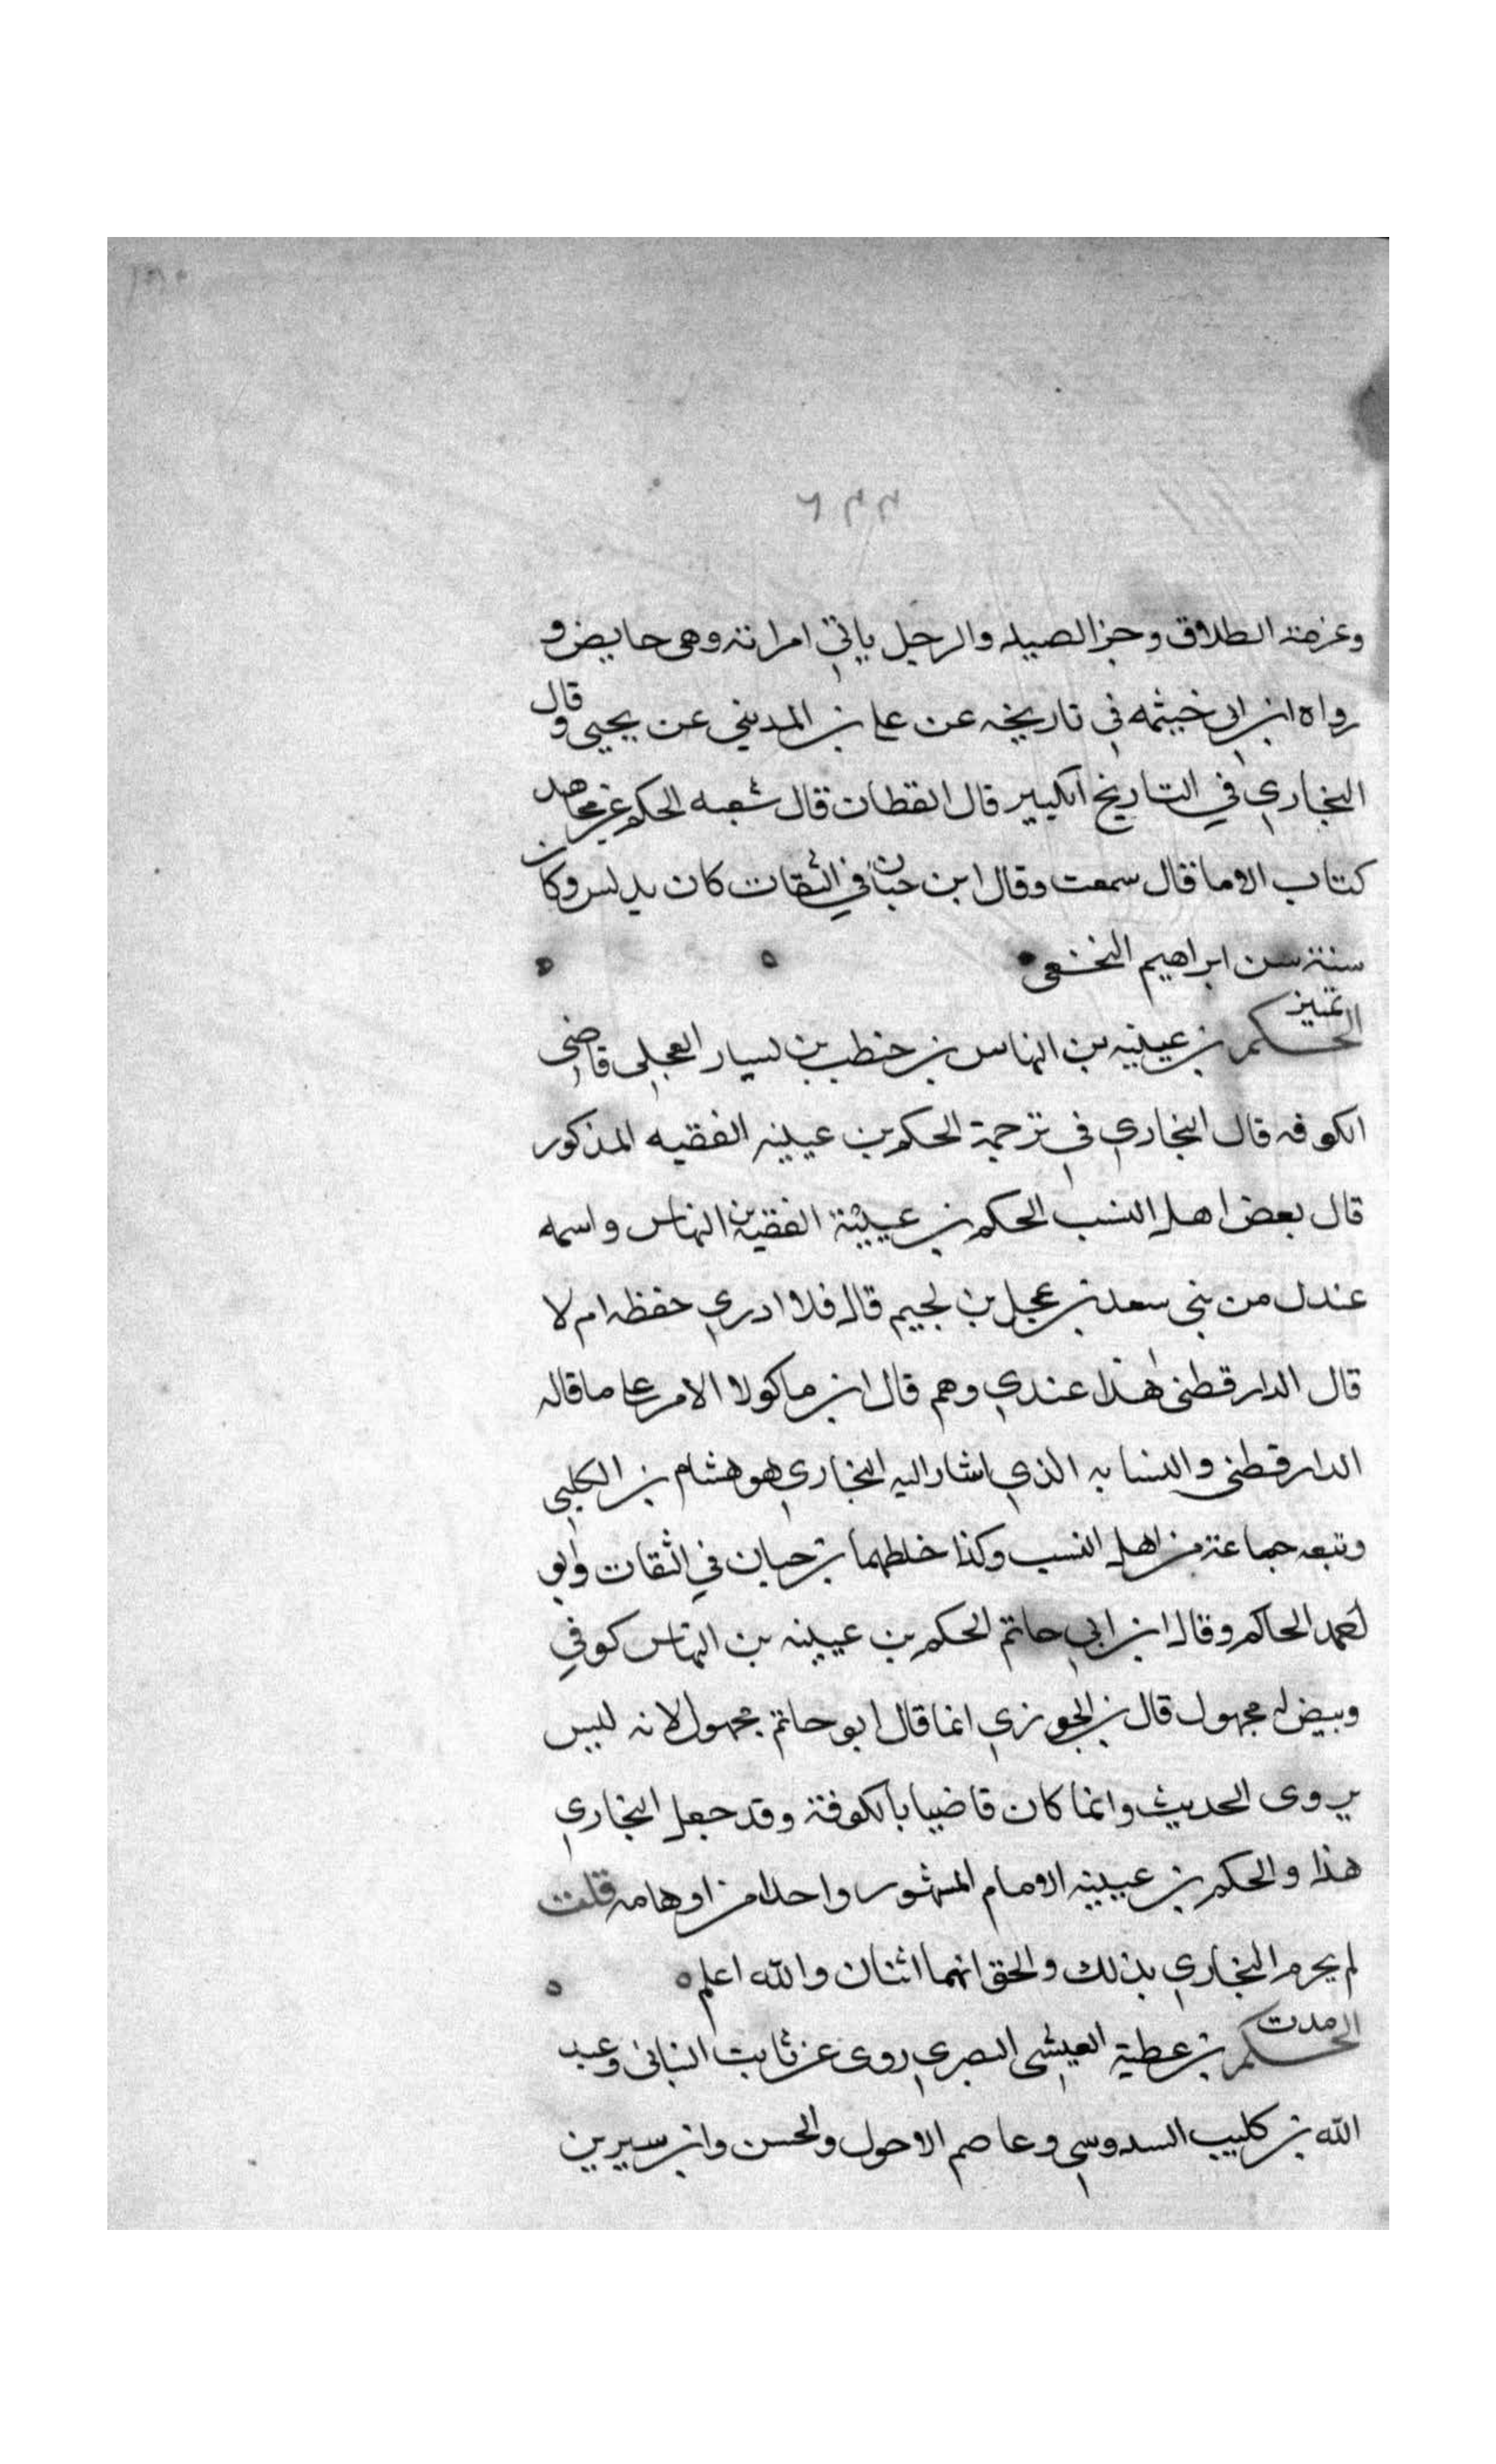 وعزمة الطلاق وجزا الصيد والرجل ياتي امراته وهي حايض و
رواه ابن ابي خيثمه في تاريخه عن علي بن المديني عن يحيى وقال
البخاري في التاريخ الكبير قال القطان قال شعبه الحكم عن مجاهد
كتاب الا ما قال سمعت وقال ابن حبان في الثقات كان يدلس وكان
سنة سن ابراهيم النخعي
تمييز
الحكم بن عيينه بن النهاس بن حنطب بن يسار العجلي قاضي
الكوفه قال البخاري في ترجمة الحكم بن عيينه الفقيه المذكور
قال بعض اهل النسب الحكم بن عيينة الفقيه بن النهاس واسمه
عندل من بني سعد بن عجل بن لجيم قال فلا ادري حفظه ام لا
قال الدارقطني هذا عندي وهم قال ابن ماكولا الامر على ما قاله
الدارقطني والنسابه الذي اشار اليه البخاري هو هشام بن الكلبي
وتبعه جماعة من اهل النسب وكذا خلطهما بن حبان في الثقات وابو
احمد الحاكم وقال ابن ابي حاتم الحكم بن عيينه بن النهاس كوفي
وبيض له مجهول قال بن الجوزي انما قال ابو حاتم مجهول لانه ليس
يروى الحديث وانما كان قاضيا بالكوفة وقد جعل البخاري
هذا والحكم بن عيينه الامام المشهور واحدا من اوهامه قلت
لم يجزم البخاري بذلك والحق انهما اثنان والله اعلم
مدت
الحكم بن عطية العيشي البصري روى عن ثابت البناني وعبد
الله بن كليب السدوسي وعاصم الاحول والحسن وابن سيرين